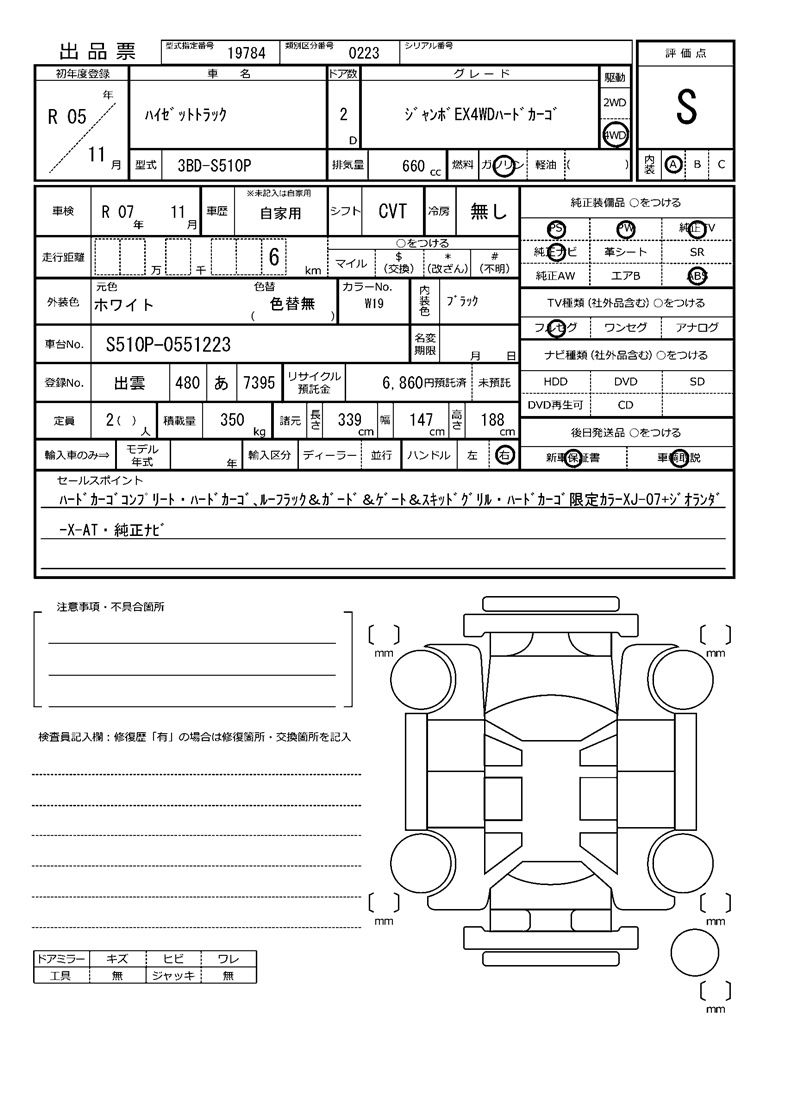 出品票 型式指定番号 19784 類別区分番号 0223 シリアル番号
初年度登録 車名 ドア数 グレード 駆動 評価点
R 05 年 11 月 ハイゼットトラック 2 D ジャンボEX4WDハードカーゴ 2WD 4WD S
型式 3BD-S510P 排気量 660 cc 燃料 ガソリン 軽油 ( ) 内装 A B C
車検 R 07 年 11 月 車歴 ※未記入は自家用 自家用 シフト CVT 冷房 無し 純正装備品 ○をつける
PS PW 純正TV
走行距離 万 千 6 km ○をつける マイル $ (交換) * (改ざん) # (不明) 純正ナビ 革シート SR
純正AW エアB ABS
外装色 元色 ホワイト 色替 色替無 ( ) カラーNo. W19 内装色 ブラック TV種類 (社外品含む) ○をつける
フルセグ ワンセグ アナログ
車台No. S510P-0551223 名変期限 月 日 ナビ種類 (社外品含む) ○をつける
登録No. 出雲 480 あ 7395 リサイクル預託金 6,860円預託済 未預託 HDD DVD SD
DVD再生可 CD
定員 2 ( ) 人 積載量 350 kg 諸元 長さ 339 cm 幅 147 cm 高さ 188 cm 後日発送品 ○をつける
輸入車のみ⇒ モデル年式 年 輸入区分 ディーラー 並行 ハンドル 左 右 新車保証書 車輌取説
セールスポイント
ハードカーゴコンプリート・ハードカーゴ、ルーフラック&ガード&ゲート&スキッドグリル・ハードカーゴ限定カラーXJ-07+ジオランダ
-X-AT・純正ナビ
注意事項・不具合箇所
mm mm
検査員記入欄：修復歴「有」の場合は修復箇所・交換箇所を記入
mm mm
ドアミラー キズ ヒビ ワレ
工具 無 ジャッキ 無
mm